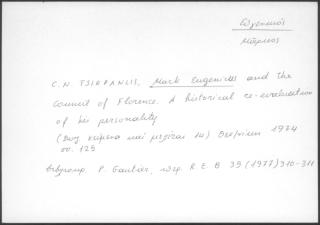 Εὐγενικός
Μάρκος
C. N. TSIRPANLIS, Mark Eugenicus and the
Council of Florence. A historical re-evaluation
of his personality
(Βυζ. κείμενα καὶ μελέται 14) Θεσ/νίκη 1974
σσ. 125
P. Gautier, R. E. B 35 (1977) 310-311